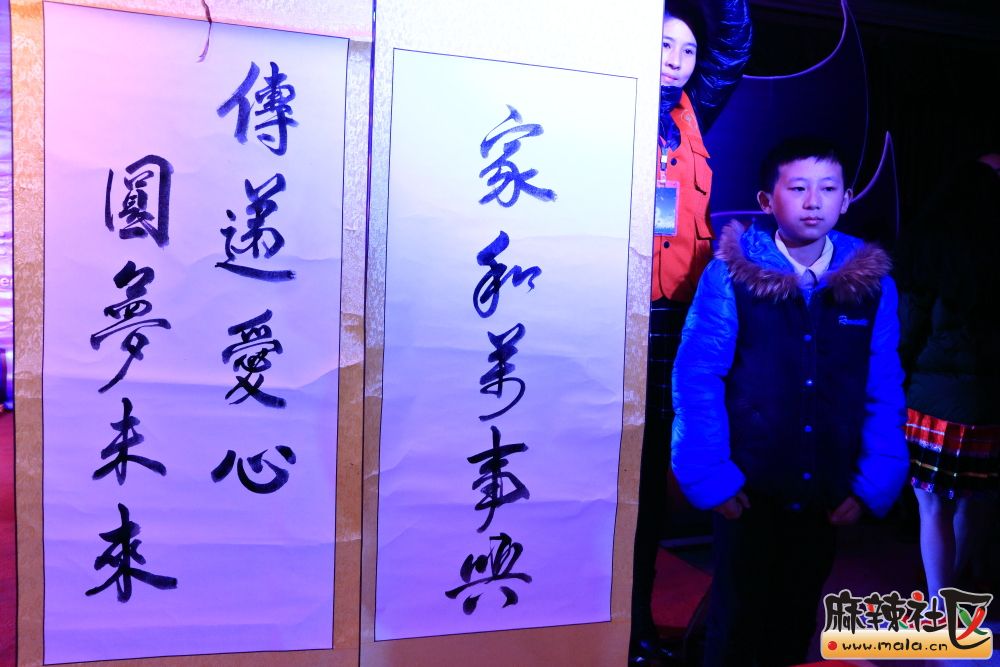 家和萬事興
傳遞愛心
圓夢未來
麻辣社区
www.mala.cn